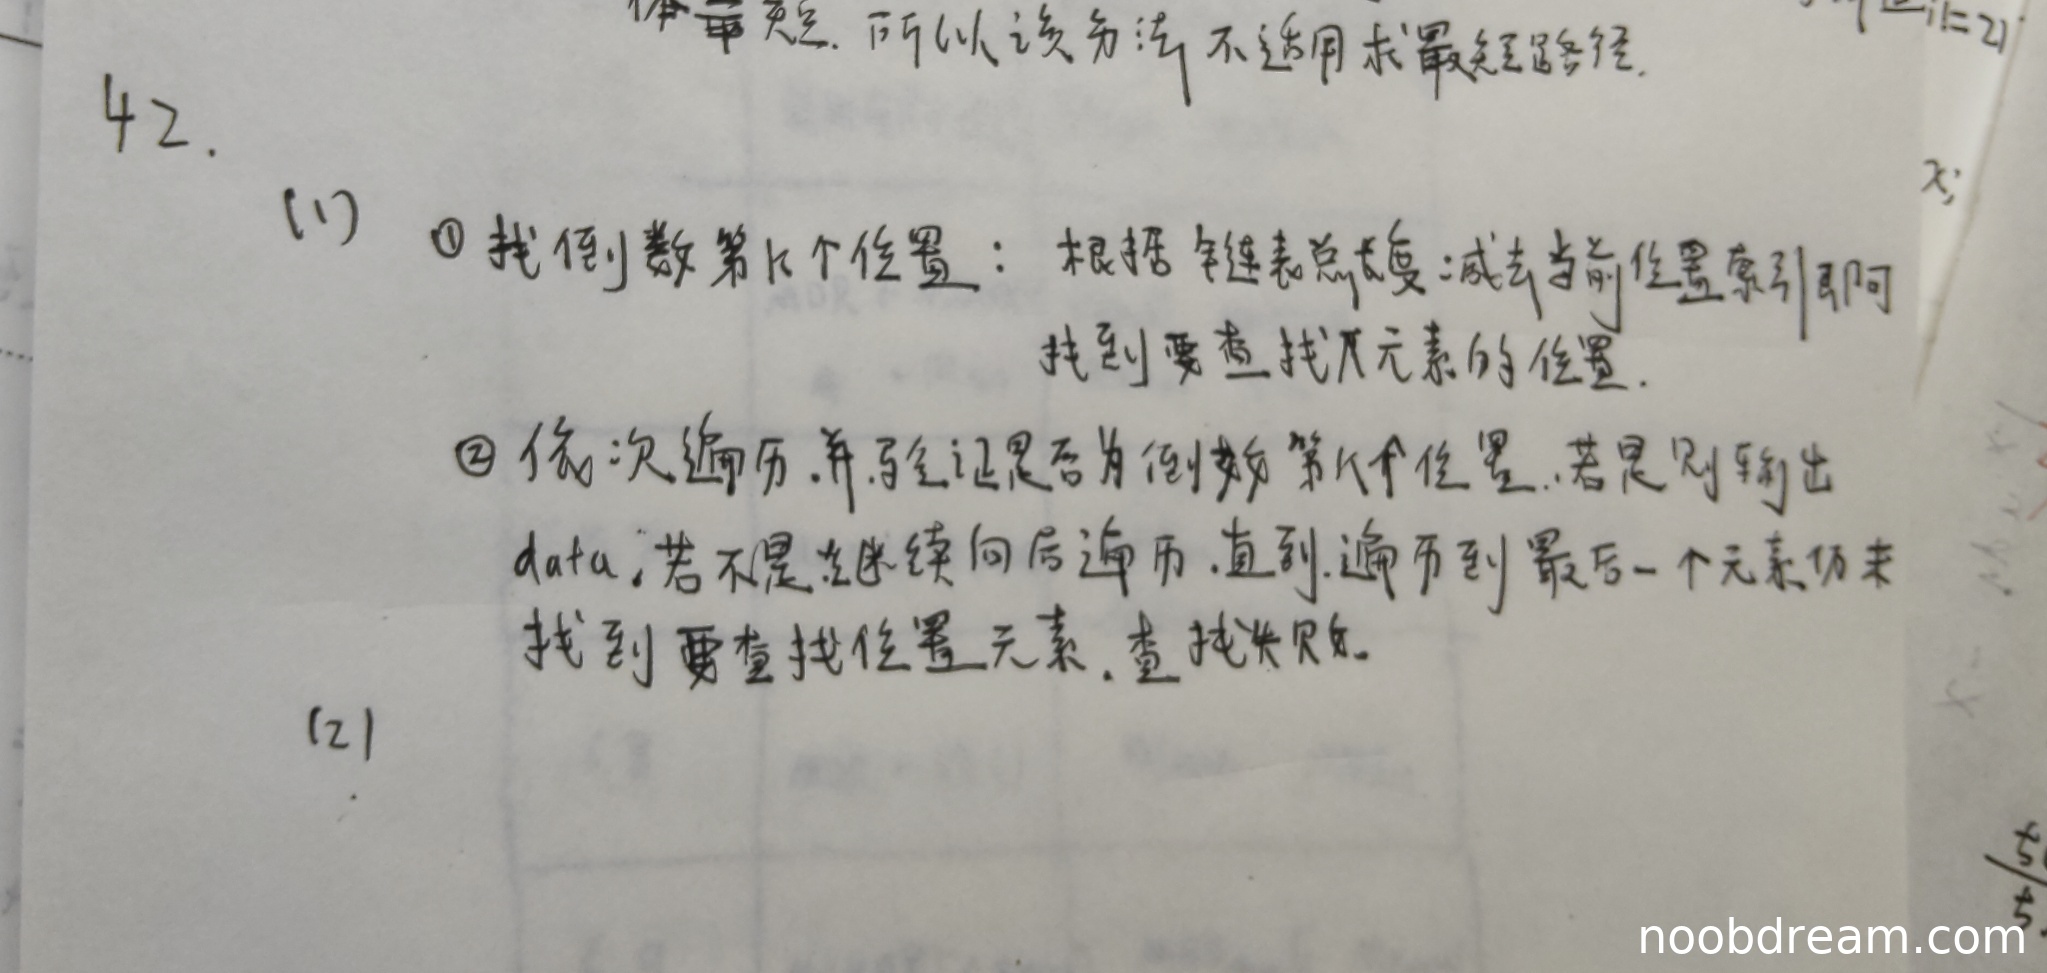 所以该方法不适用求最短路径.
42.
(1) ① 找倒数第k个位置: 根据链表总长度减去当前位置索引即可
找到要查找元素的位置.
② 依次遍历.并验证是否为倒数第k个位置.若是则输出
data.若不是继续向后遍历.直到遍历到最后一个元素仍未
找到要查找位置元素.查找失败.
(2)
noobdream.com